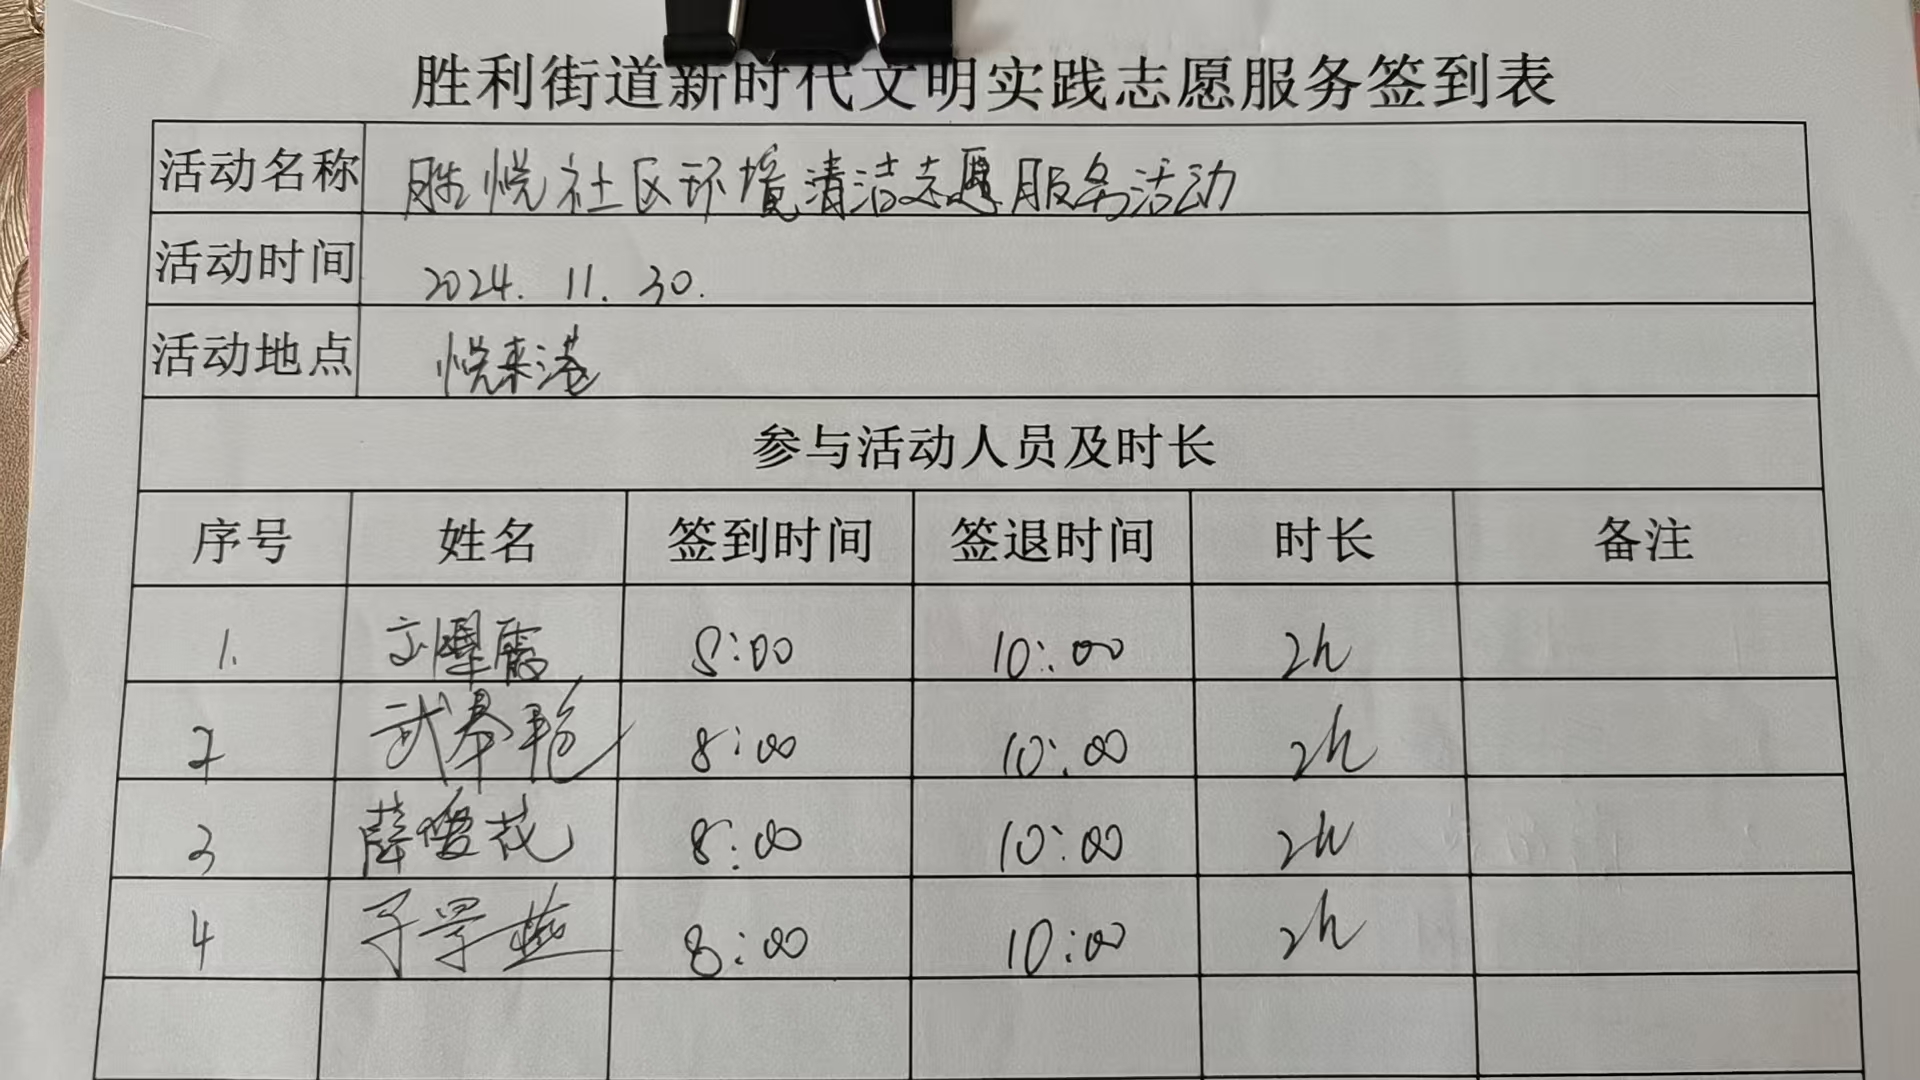 胜利街道新时代文明实践志愿服务签到表
活动名称 胜悦社区环境清洁志愿服务活动
活动时间 2024.11.30.
活动地点 悦来港
参与活动人员及时长
序号 姓名 签到时间 签退时间 时长 备注
1. 8:00 10:00 2h
2 武 8:00 10:00 2h
3 薛 花 8:00 10:00 2h
4 8:00 10:00 2h